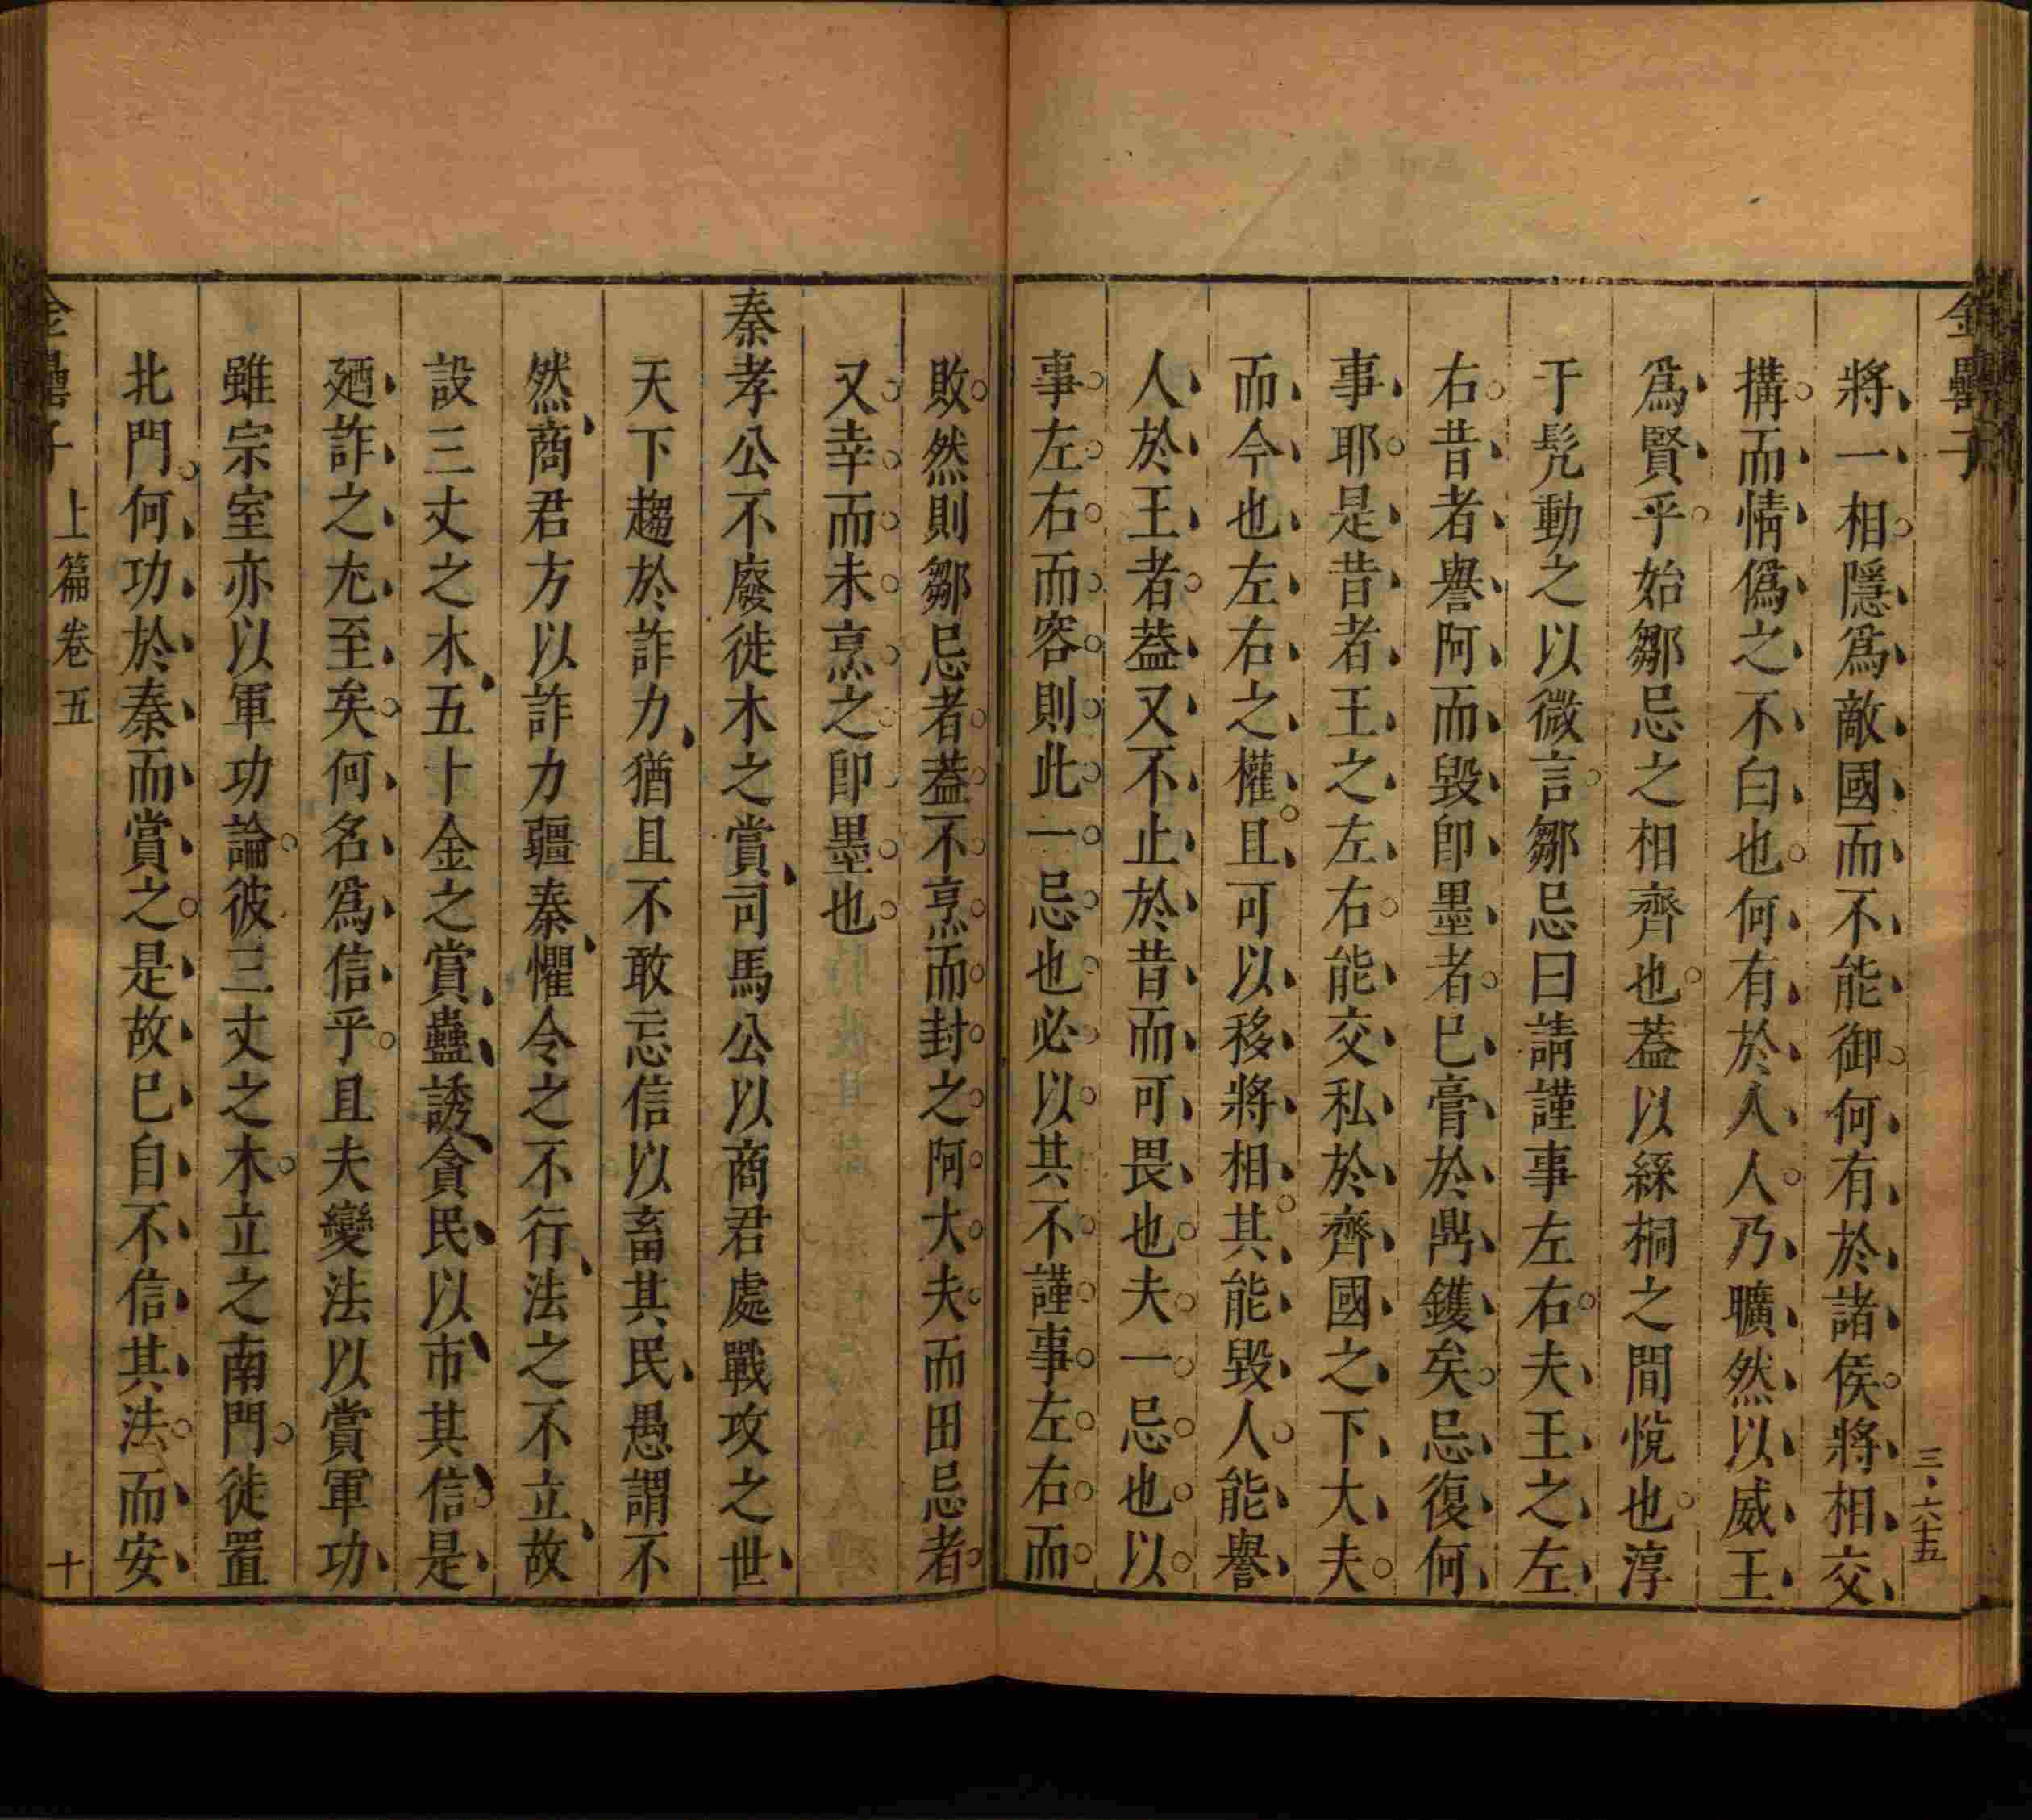 金罍子
三·六十五
將一相隱爲敵國而不能御何有於諸侯將相交
搆而情僞之不白也何有於人人乃曠然以威王
爲賢乎始鄒忌之相齊也葢以絲桐之間悅也淳
于髠動之以微言鄒忌曰請謹事左右夫王之左
右昔者譽阿而毀卽墨者巳膏於鼎鑊矣忌復何
事耶是昔者王之左右能交私於齊國之下大夫
而今也左右之權且可以移將相其能毀人能譽
人於王者葢又不止於昔而可畏也夫一忌也以
事左右而容則此一忌也必以其不謹事左右而
敗然則鄒忌者葢不烹而封之阿大夫而田忌者
又幸而未烹之卽墨也
秦孝公不廢徙木之賞司馬公以商君處戰攻之世
天下趨於詐力猶且不敢忘信以畜其民愚謂不
然商君方以詐力疆秦懼令之不行法之不立故
設三丈之木五十金之賞蠱誘貪民以市其信是
廼詐之尤至矣何名爲信乎且夫變法以賞軍功
雖宗室亦以軍功論彼三丈之木立之南門徙置
北門何功於秦而賞之是故巳自不信其法而安
金罍子
上篇卷五
十